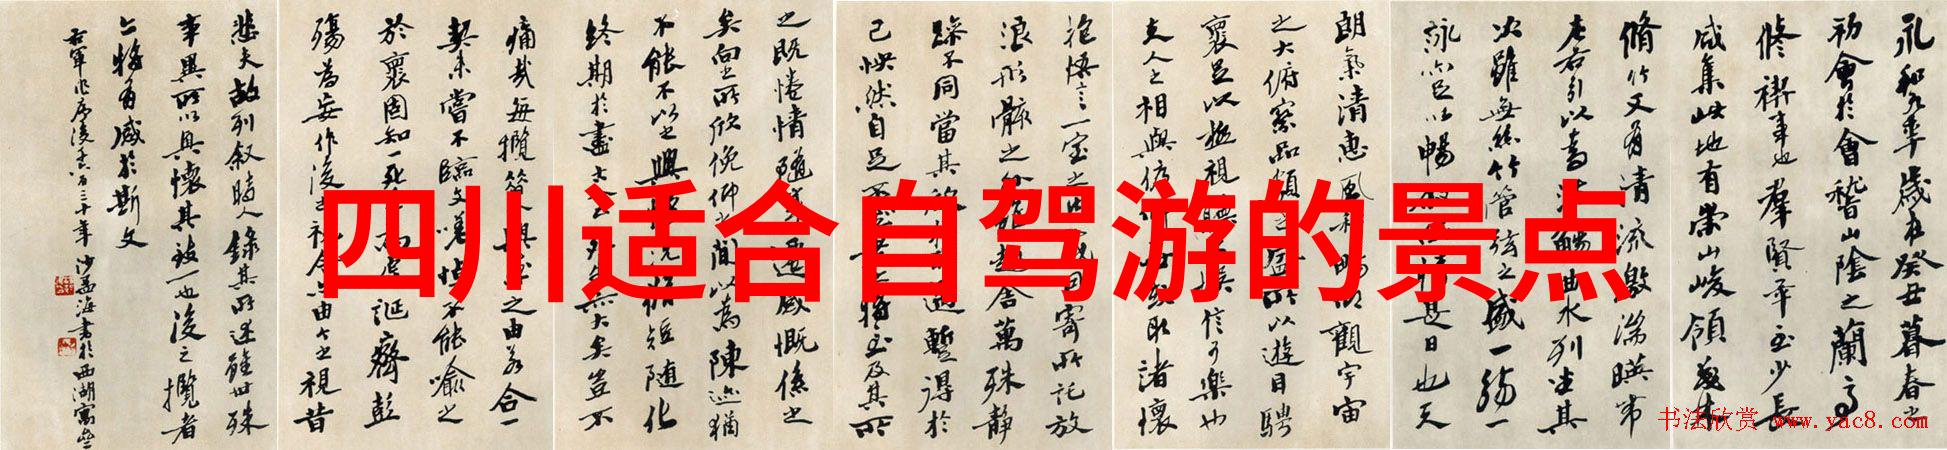 四川适合自驾游的景点
永和九年歲在癸丑暮春之
初會於會稽山陰之蘭亭
修禊事也羣賢畢至少長
咸集此地有崇山峻領茂林
脩竹又有清流激湍暎帶
左右引以為流觴曲水列坐其
次雖無絲竹管弦之盛一觴一
詠亦足以暢敘幽情是日也天
朗氣清惠風和暢仰觀宇宙
之大俯察品類之盛所以遊目騁
懷足以極視聽之娛信可樂也
夫人之相與俯仰一世或取諸懷
抱悟言一室之內或因寄所託放
浪形骸之外雖趣舍萬殊靜
躁不同當其欣於所遇暫得於
己怏然自足不知老之將至及其所
之既惓情隨事遷感慨係之
矣向之所欣俛仰之間以為陳迹猶
不能不以之興懷況脩短隨化
終期於盡古人云死生亦大矣豈不
痛哉每攬昔人興感之由若合一
契未嘗不臨文嗟悼不能喻之
於懷固知一死生為虛誕齊彭
殤為妄作後之視今亦由今之視昔
悲夫故列敘時人錄其所述雖世殊
事異所以興懷其致一也後之攬者
亦將有感於斯文
右軍作序後千六百三十年沙孟海書於西湖寓舍
书法欣赏 www.yac8.com